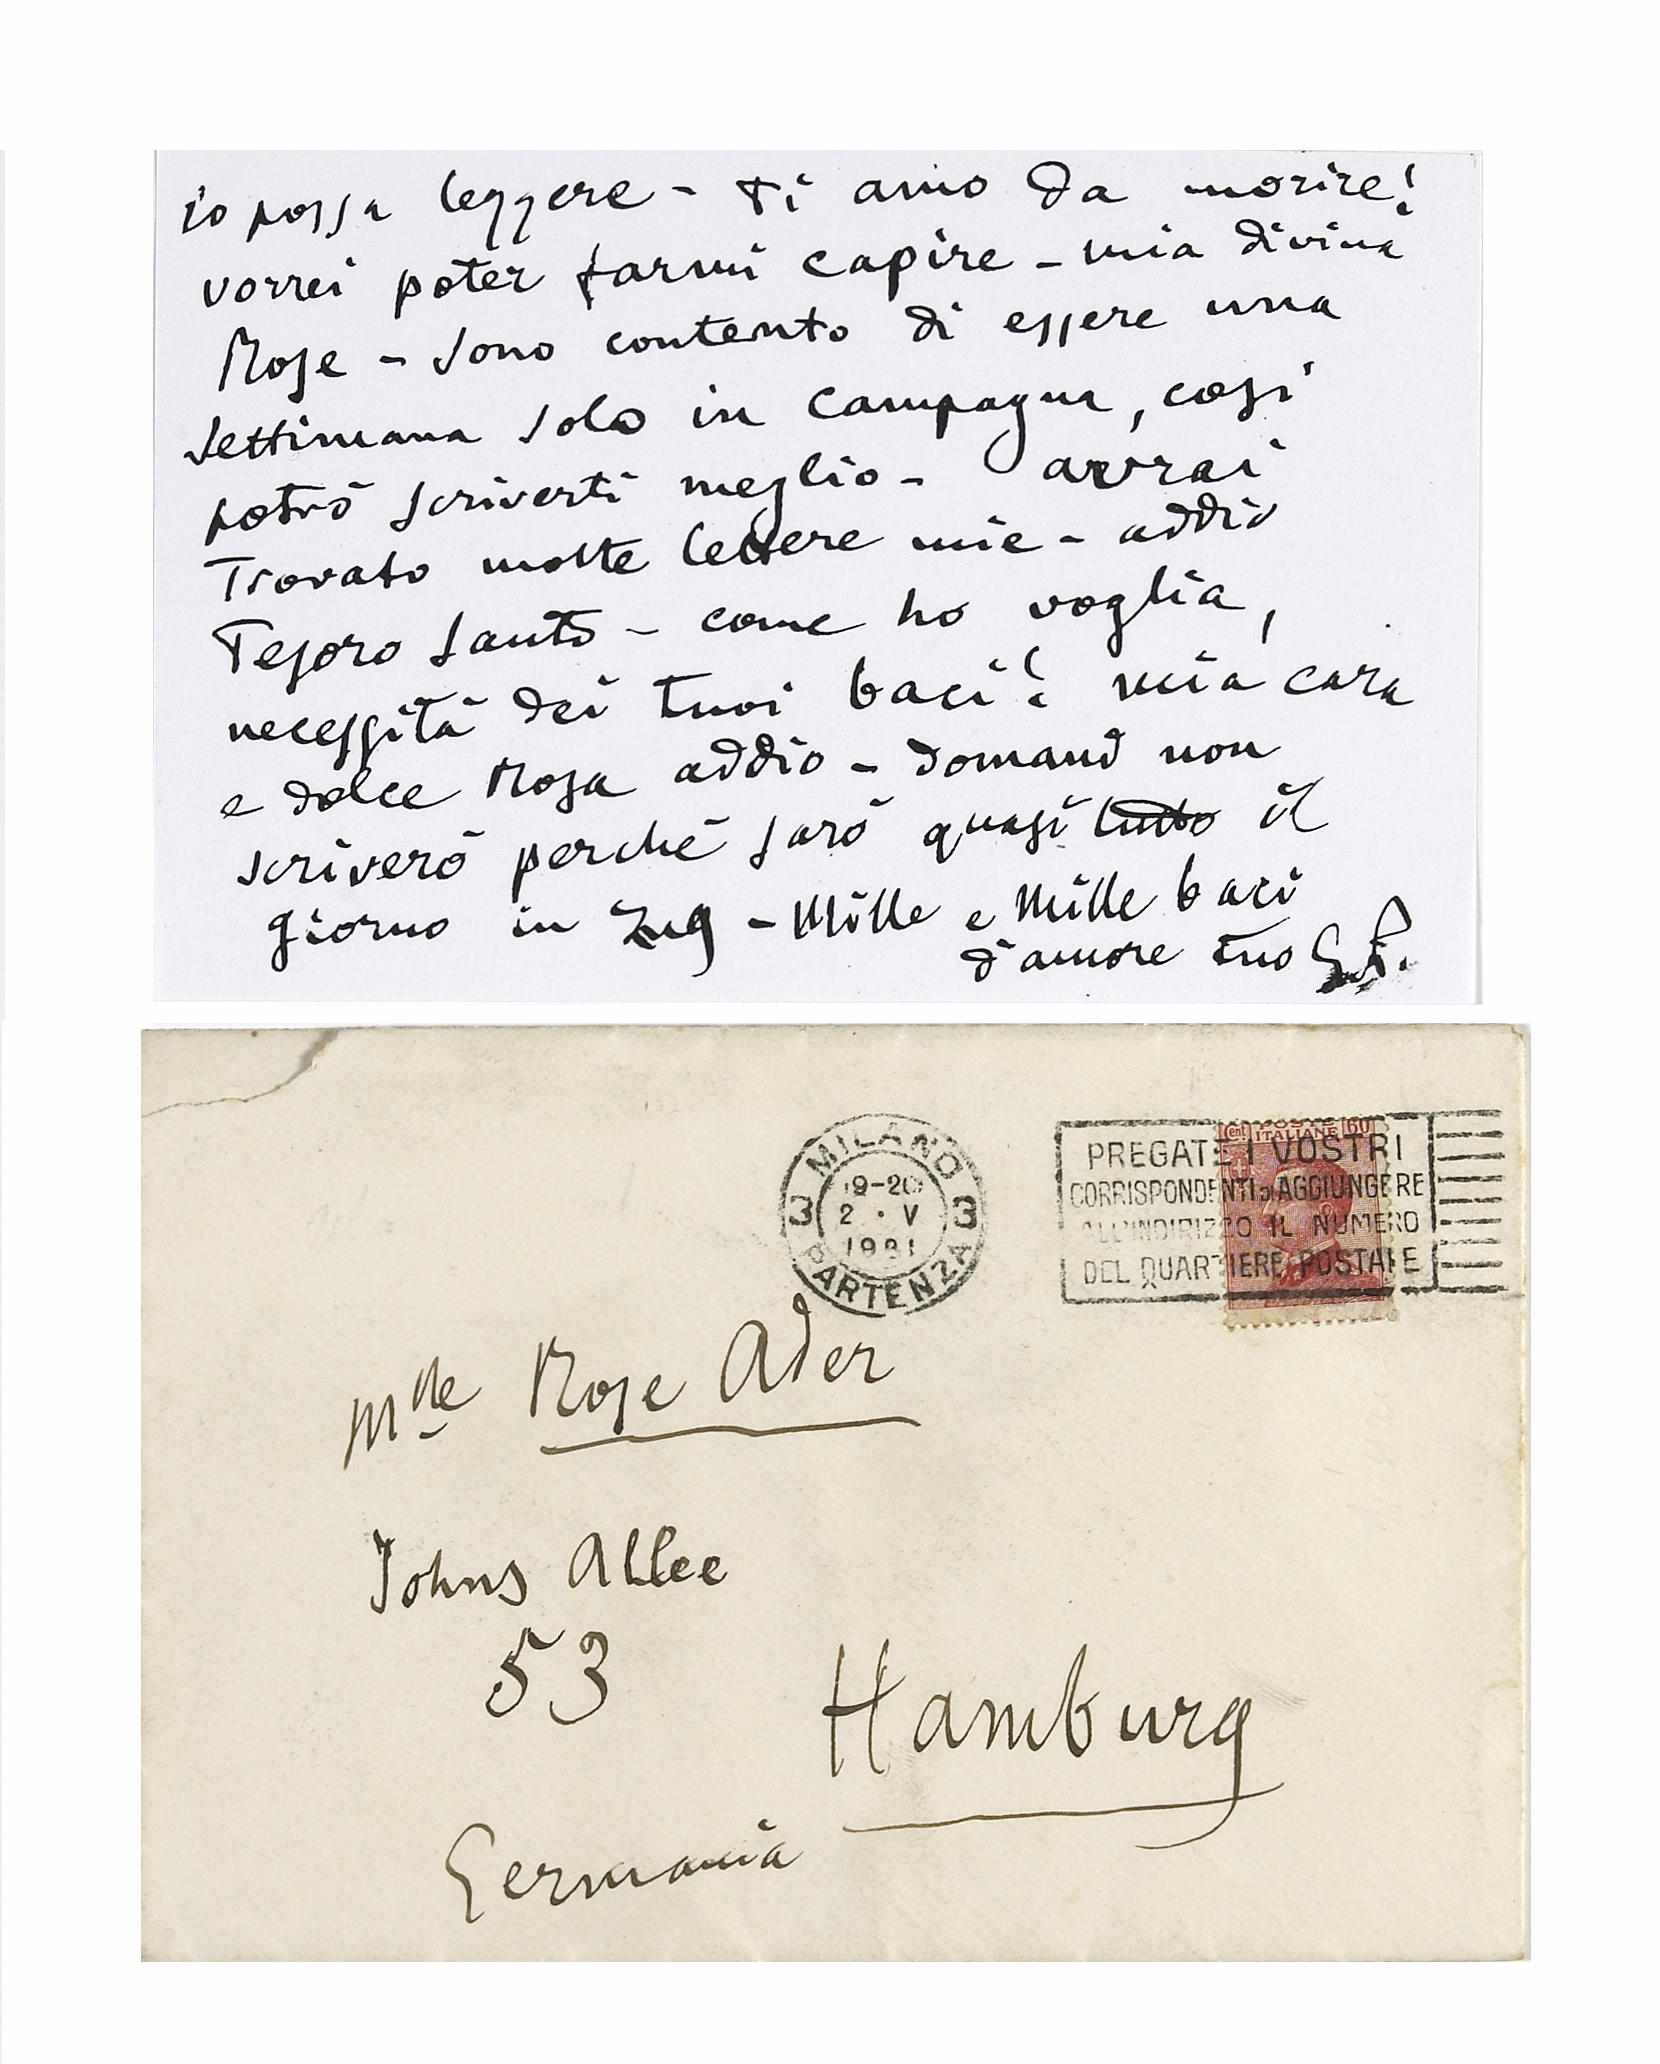 io possa leggere - ti amo da morire!
vorrei poter farmi capire - mia divina
Rose - sono contento di essere una
settimana solo in campagna, così
potrò scriverti meglio - avrai
Trovato molte lettere mie - addio
Tesoro santo - come ho voglia,
necessità dei tuoi baci! mia cara
e dolce Rosa addio - domani non
scriverò perchè sarò quasi tutto il
giorno in Zug - Mille e Mille baci
d'amore tuo G.P.
MILANO
19-20
3 2 · V 3
1921
PARTENZA
Cent POSTE ITALIANE 60
PREGATE I VOSTRI
CORRISPONDENTI DI AGGIUNGERE
ALL'INDIRIZZO IL NUMERO
DEL QUARTIERE POSTALE
Mlle Rose Ader
Johns Allee
53
Hamburg
Germania